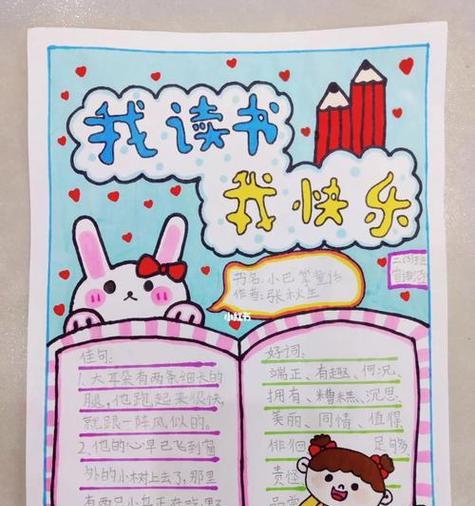 我读书
我快乐
书名:小巴掌童话
作者:张秋生
小红书
佳句:
1.大耳朵有两条细长的
腿,他跑起来很快
就跟一阵风似的。
2.他的心早已飞到窗
外的小树上去了,那里
好词:
端正、有趣、何况、
拥有、糟糕、沉思
美丽、同情、值得
徘徊 足够
责怪